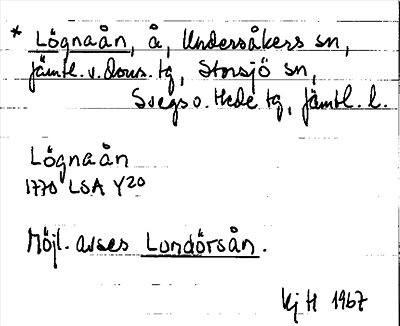 * Lögnaån, å, Undersåkers sn,
Jämtl. v. doms. tg, Storsjö sn,
Svegs o. Hede tg, Jämtl. l.
Lögnaån
1770 LSA Y20
Möjl. avses Lundörsån.
Kj H 1967